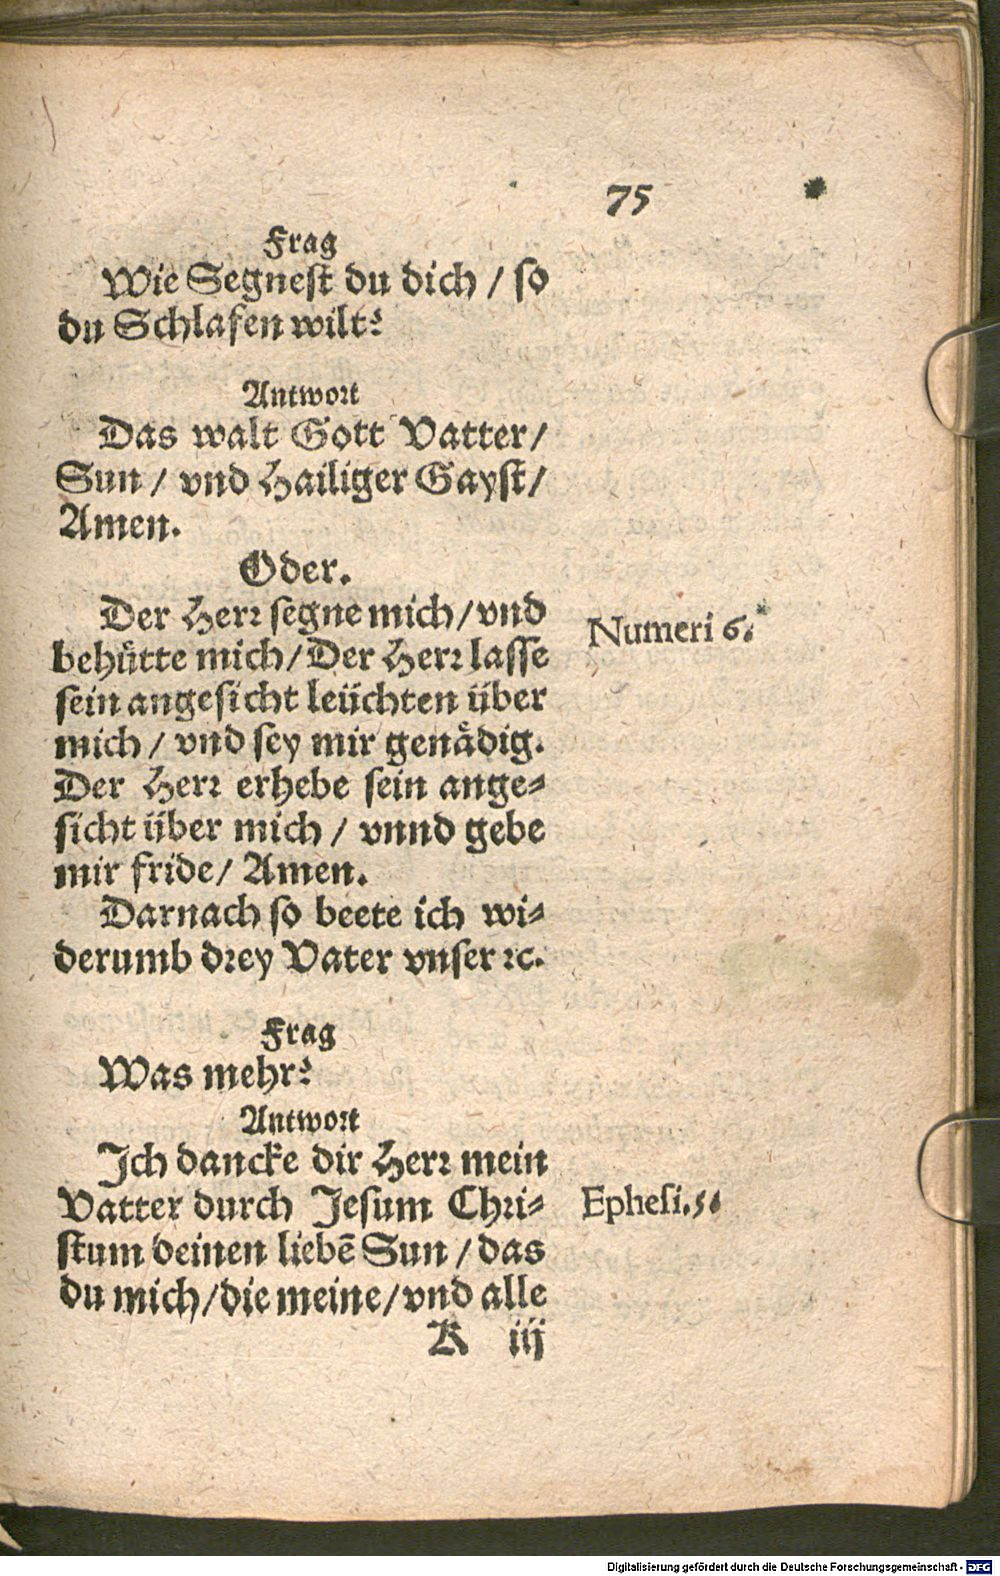 75
Frag
Wie Segnest du dich / so
du Schlafen wilt?
Antwort
Das walt Gott Vatter /
Sun / vnd Hailiger Gayst /
Amen.
Oder.
Der Herr segne mich / vnd
behuͤtte mich / Der Herr lasse
sein angesicht leüchten über
mich / vnd sey mir genaͤdig.
Der Herr erhebe sein ange-
sicht über mich / vnnd gebe
mir fride / Amen.
Darnach so beete ich wi-
derumb drey Vater vnser ꝛc.
Numeri 6.
Frag
Was mehr?
Antwort
Ich dancke dir Herr mein
Vatter durch Jesum Chri-
stum deinen liebē Sun / das
du mich / die meine / vnd alle
Ephesi. 5.
K iij
Digitalisierung gefördert durch die Deutsche Forschungsgemeinschaft - DFG